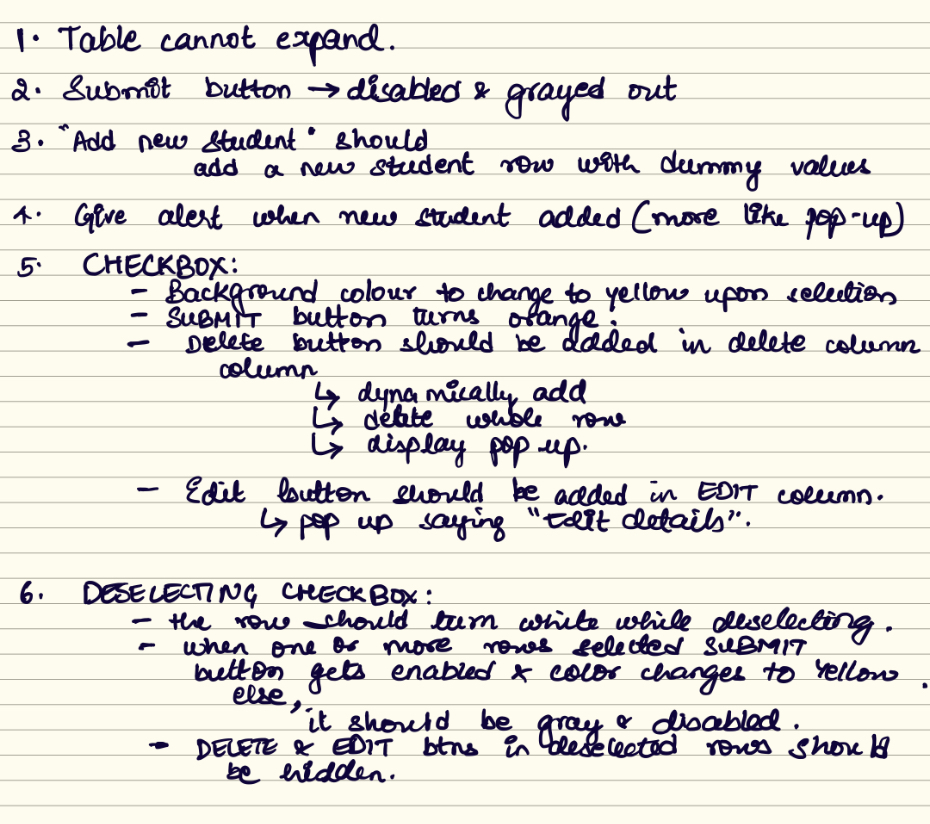 1. Table cannot expand.
2. Submit button → disabled & grayed out
3. "Add new student" should
add a new student row with dummy values
4. Give alert when new student added (more like pop-up)
5. CHECKBOX:
- Background colour to change to yellow upon selection
- SUBMIT button turns orange.
- Delete button should be added in delete column
column
↳ dynamically add
↳ delete whole row
↳ display pop up.
- Edit button should be added in EDIT column.
↳ pop up saying "Edit details".
6. DESELECTING CHECKBOX:
- the row should turn white while deselecting.
- when one or more rows selected SUBMIT
button gets enabled & color changes to Yellow.
else,
it should be gray & disabled.
- DELETE & EDIT btns in deselected rows should
be hidden.